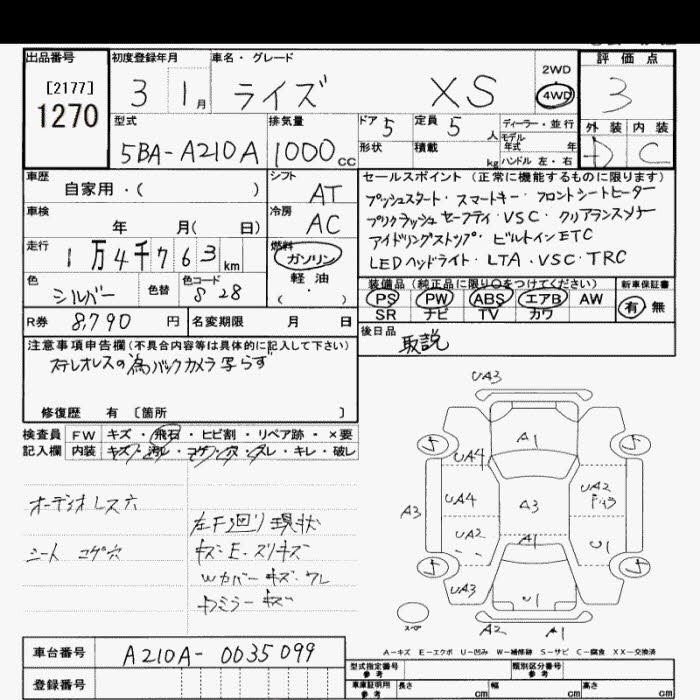 出品番号
[2177]
1270
初度登録年月
3 1月
車名・グレード
ライズ XS
2WD
4WD
評価点
3
外装 内装
D C
型式
5BA-A210A
排気量
1000cc
ドア 5
定員 5人
ディーラー・並行
モデル年式 年
形状
積載 kg
ハンドル 左・右
車歴
自家用・( )
シフト
AT
車検
年 月( 日)
冷房
AC
走行
1万4千763km
燃料
ガソリン
軽油
( ・ )
色
シルバー
色替
色コード
S28
R券 8,790円
名変期限 月 日
セールスポイント(正常に機能するものに限ります)
プッシュスタート・スマートキー・フロントシートヒーター
プリクラッシュセーフティ・VSC・クリアランスソナー
アイドリングストップ・ビルトインETC
LEDヘッドライト・LTA・VSC・TRC
装備品(純正品に限り○をつけてください)
新車保証書
PS PW ABS エアB AW
SR ナビ TV カワ
有・無
後日品
取説
注意事項申告欄(不具合内容等は具体的に記入して下さい)
ステレオレスの為バックカメラ写らず
修復歴 有〔箇所 〕
検査員記入欄
FW キズ・飛石・ヒビ割・リペア跡・×要
内装 キズ・汚レ・コゲ・穴・スレ・キレ・破レ
オーディオレス穴
シート コゲ穴
左F廻り現状
キズ・E・スリキズ
Wカバーキズ・ワレ
ドミラーキズ
UA3
A1
UA4
UA4
UA2
UA3
A3
A3
A1
UA2
U1
U1
A2
A1
スペア
A-キズ E-エクボ U-凹み W-補修跡 S-サビ C-腐食 XX-交換済
車台番号
A210A-0035099
登録番号
型式指定番号
参考
類別区分番号
参考
車庫証明用
参考
長さ cm
幅 cm
高さ cm